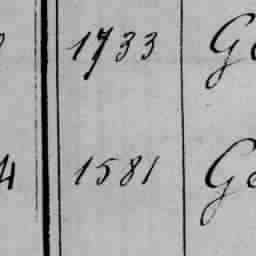 1733 Ge
4 1581 Ge